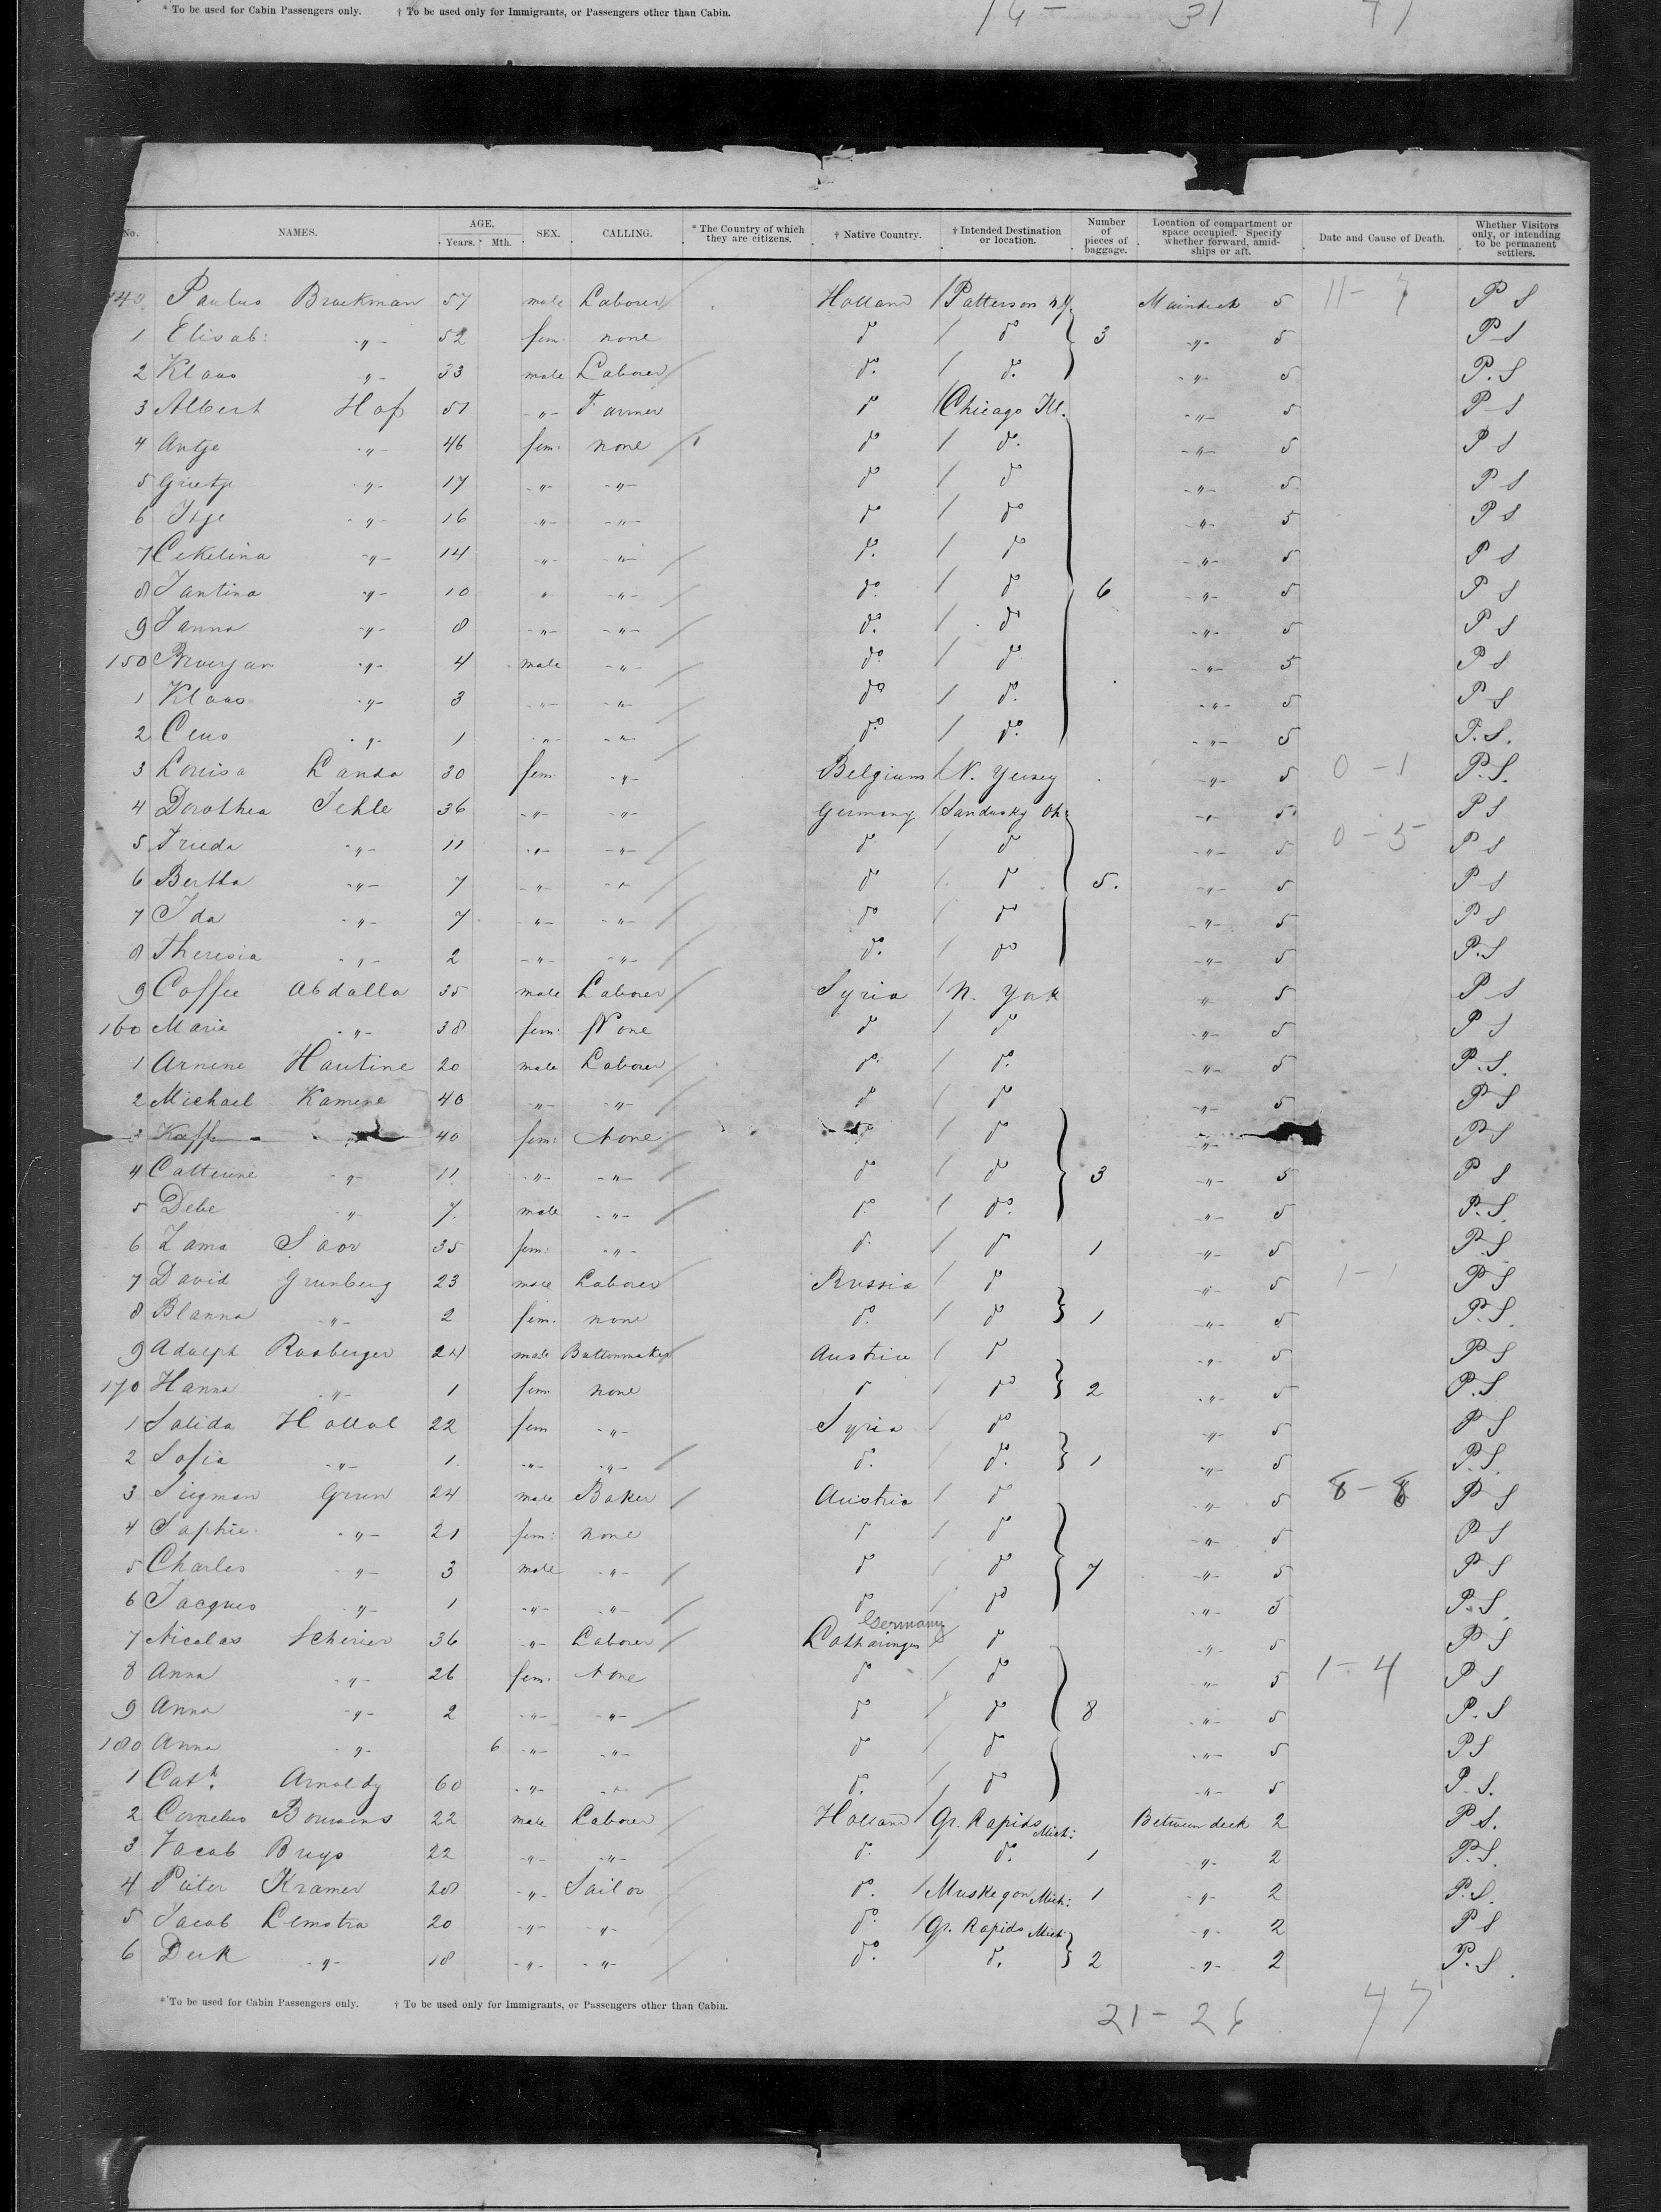 * To be used for Cabin Passengers only. † To be used only for Immigrants, or Passengers other than Cabin.
14 - 31 71
No. NAMES. AGE. Years. Mth. SEX. CALLING. * The Country of which they are citizens. † Native Country. † Intended Destination or location. Number of pieces of baggage. Location of compartment or space occupied. Specify whether forward, amidships or aft. Date and Cause of Death. Whether Visitors only, or intending to be permanent settlers.
140 Paulus Bruekman 57 male Laborer Holland Patterson N.J. Maindeck 5 11 - 7 P S
1 Elisab: -"- 52 fem. none do do 3 -"- 5 P S
2 Klaas -"- 33 male Laborer do. do. -"- 5 P. S
3 Albert Hof 51 -"- Farmer do Chicago Ill. -"- 5 P S
4 Antje -"- 46 fem. none do do. -"- 5 P S
5 Grietje -"- 17 -"- -"- do do -"- 5 P S
6 Itje -"- 16 -"- -"- do do -"- 5 P S
7 Cekelina -"- 14 -"- -"- do. do -"- 5 P S
8 Jantina -"- 10 " -"- do. do 6 -"- 5 P S
9 Janna -"- 8 -"- -"- do. do -"- 5 P S
150 -"- 4 male -"- do. do -"- 5 P S
1 Klaas -"- 3 -"- -"- do do. -"- 5 P S
2 -"- 1 -"- -"- do. do. -"- 5 P. S.
3 Louisa Landa 30 fem. -"- Belgium N. Yersey -"- 5 0 - 1 P. S.
4 Dorothea Jehle 36 -"- -"- Germany Sandusky Oh: -"- 5 P S
5 Frieda -"- 11 -"- -"- do do -"- 5 0 - 5 P S
6 Bertha -"- 7 -"- -"- do do 5. -"- 5 P S
7 Ida -"- 7 -"- -"- do do -"- 5 P S
8 Theresia -"- 2 -"- -"- do. do -"- 5 P. S
9 Coffee Abdalla 35 male Laborer Syria N. York " 5 P S
160 Marie -"- 38 fem. None do do -"- 5 P S
1 Arnene Hautine 20 male Laborer do. do. -"- 5 P. S.
2 Michael Kamene 40 -"- -"- do do -"- 5 P S
3 Kaff 40 fem. None do do -"- P S
4 Catterine -"- 11 -"- -"- do do 3 -"- 5 P S
5 Debe " 7. male -"- do. do. -"- 5 P. S.
6 Zama Saor 35 fem. -"- do. do 1 -"- 5 P. S
7 David Grunberg 23 male Laborer Russia do -"- 5 1 - 1 P S
8 Blanna -"- 2 fem. none do. do 1 -"- 5 P. S.
9 Adolph Rosberger 24 male Buttonmaker Austria do -"- 5 P S
170 Hanna -"- 1 fem none do do 2 -"- 5 P. S
1 Salida Hallal 22 fem -"- Syria do -"- 5 P S
2 Sofia -"- 1. -"- -"- do. do. 1 -"- 5 P. S.
3 Siegman Grun 24 male Baker Austria do -"- 5 8 - 8 P S
4 Sophie -"- 21 fem: none do do -"- 5 P S
5 Charles -"- 3 male -"- do do 7 -"- 5 P S
6 Jacques -"- 1 -"- -"- do do -"- 5 P. S.
Germany
7 Nicolas Scherier 36 -"- Laborer Lotharingen do " 5 P S
8 Anna -"- 26 fem. None do do -"- 5 1 - 4 P S
9 Anna -"- 2 -"- -"- do do 8 -"- 5 P. S
180 Anna -"- 6 -"- -"- do do -"- 5 P S
1 Cath. Arnoldy 60 -"- -"- do. do -"- 5 P. S.
2 Cornelus Bouwens 22 male Laborer Holland Gr. Rapids Mich: Between deck 2 P S.
3 Jacob Buys 22 -"- -"- do. do. 1 -"- 2 P. S.
4 Pieter Kramer 28 -"- Sailor do. Muskegon Mich: 1 -"- 2 P. S.
5 Jacob Lemstra 20 -"- -"- do. Gr. Rapids Mich: -"- 2 P S
6 Derk -"- 18 -"- -"- do. do. 2 -"- 2 P. S.
* To be used for Cabin Passengers only. † To be used only for Immigrants, or Passengers other than Cabin.
21 - 26 47